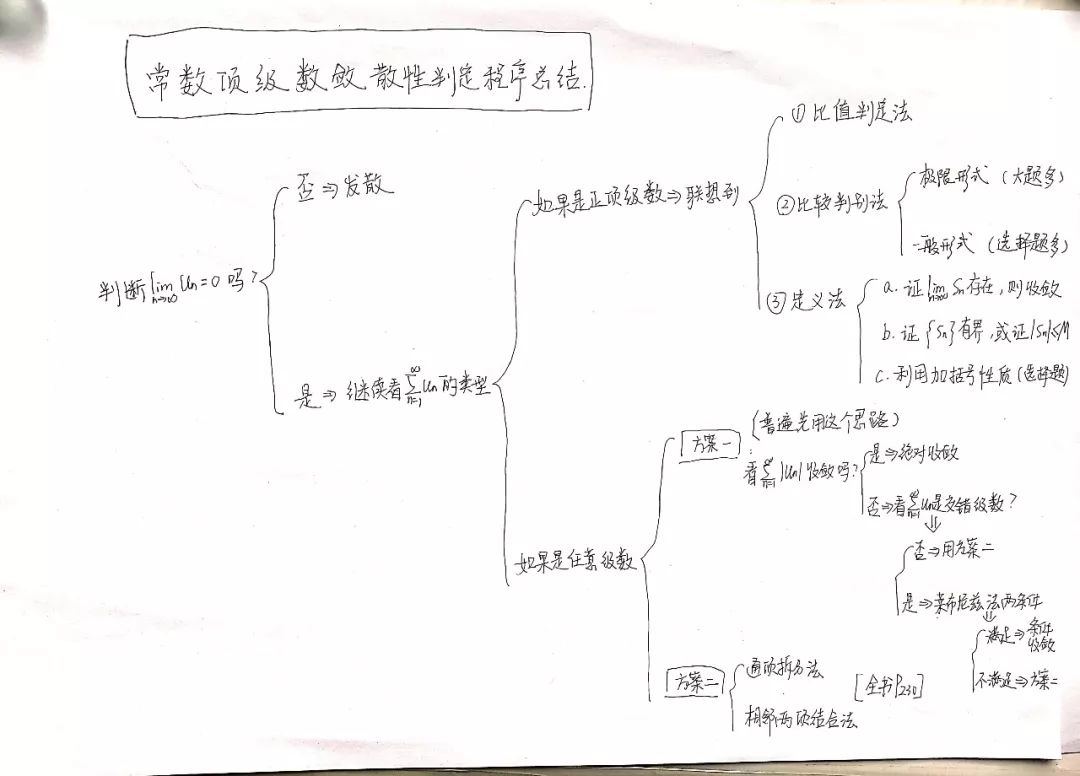 常数项级数敛散性判定程序总结.
判断lim n→∞ Un=0吗?
否⇒发散
是⇒继续看∑n=1∞ Un的类型
如果是正项级数⇒联想到
①比值判定法
②比较判别法
极限形式(大题多)
一般形式(选择题多)
③定义法
a.证lim n→∞ Sn存在,则收敛
b.证{Sn}有界,或证|Sn|≤M
c.利用加括号性质(选择题)
如果是任意级数
方案一(普遍先用这个思路)
看∑n=1∞ |Un|收敛吗?
是⇒绝对收敛
否⇒看∑n=1∞ Un是交错级数?
⇓
否⇒用方案二
是⇒莱布尼兹法两条件
⇓
满足⇒条件收敛
不满足⇒方案二
方案二
通项拆分法
相邻两项结合法
[全书P230]